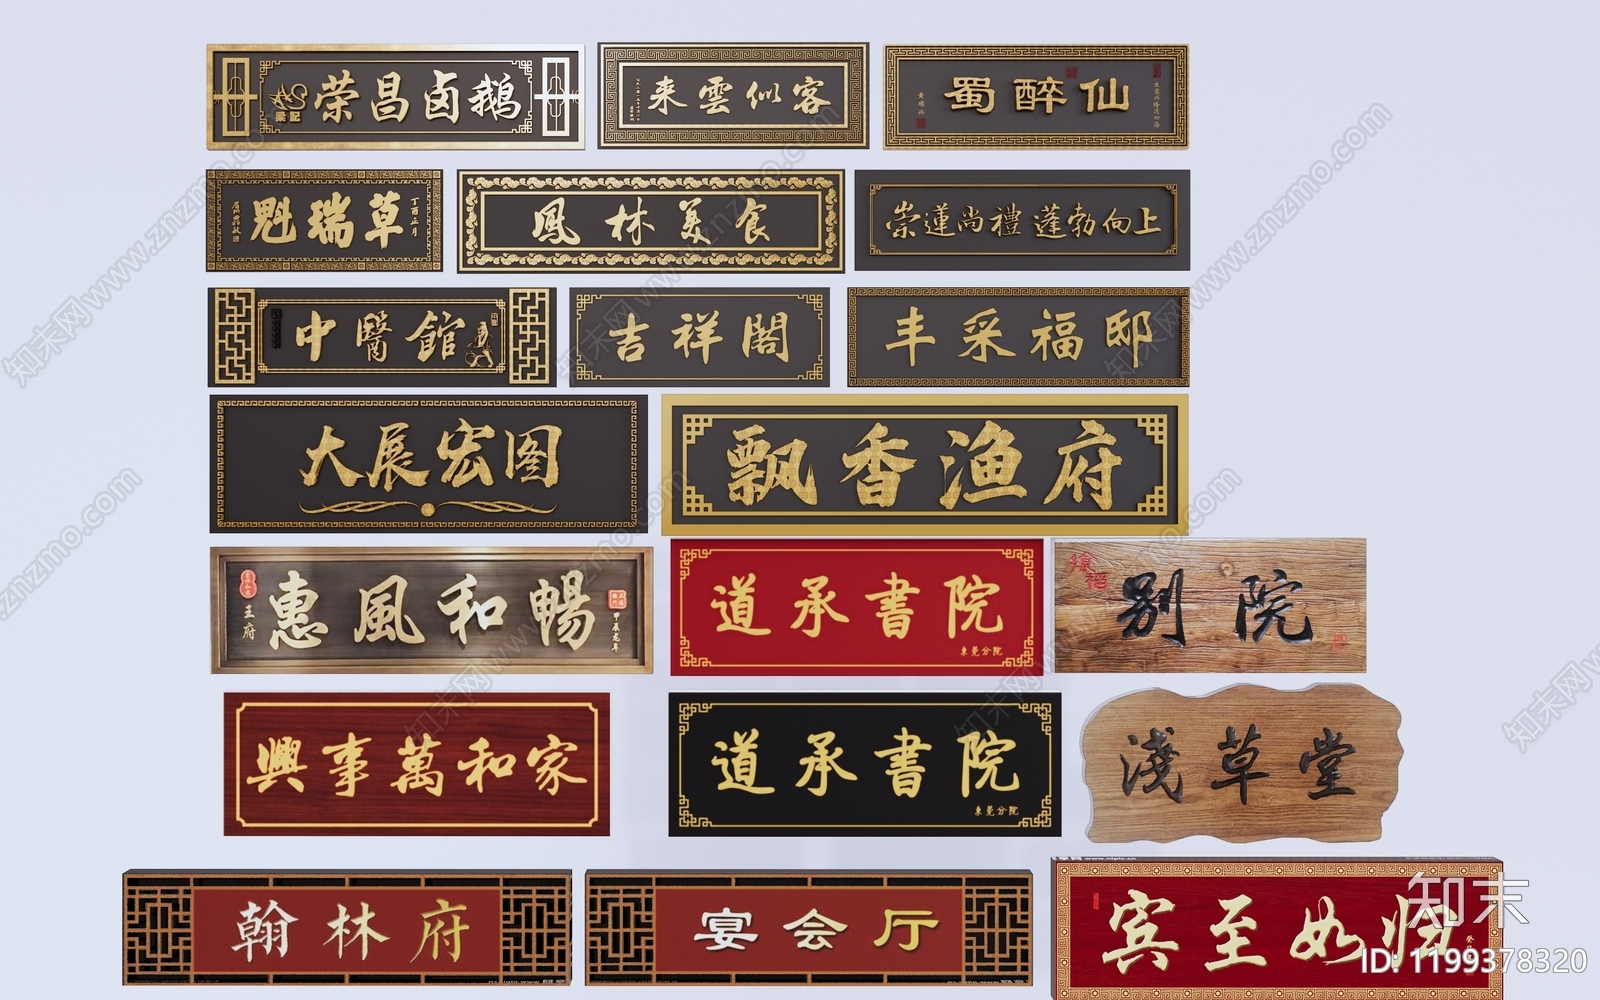 荣昌卤鹅
梁记
来雲似客
蜀醉仙
魁瑞草
丁酉正月
鳳林美食
崇蓮尚禮 蓬勃向上
中醫館
吉祥閣
丰采福邸
大展宏图
飘香渔府
惠風和暢
王府
甲辰龙年
道承書院
東莞分院
别院
興事萬和家
道承書院
東莞分院
淺草堂
翰林府
宴会厅
宾至如归
知末
ID: 1199378320
知末网www.znzmo.com